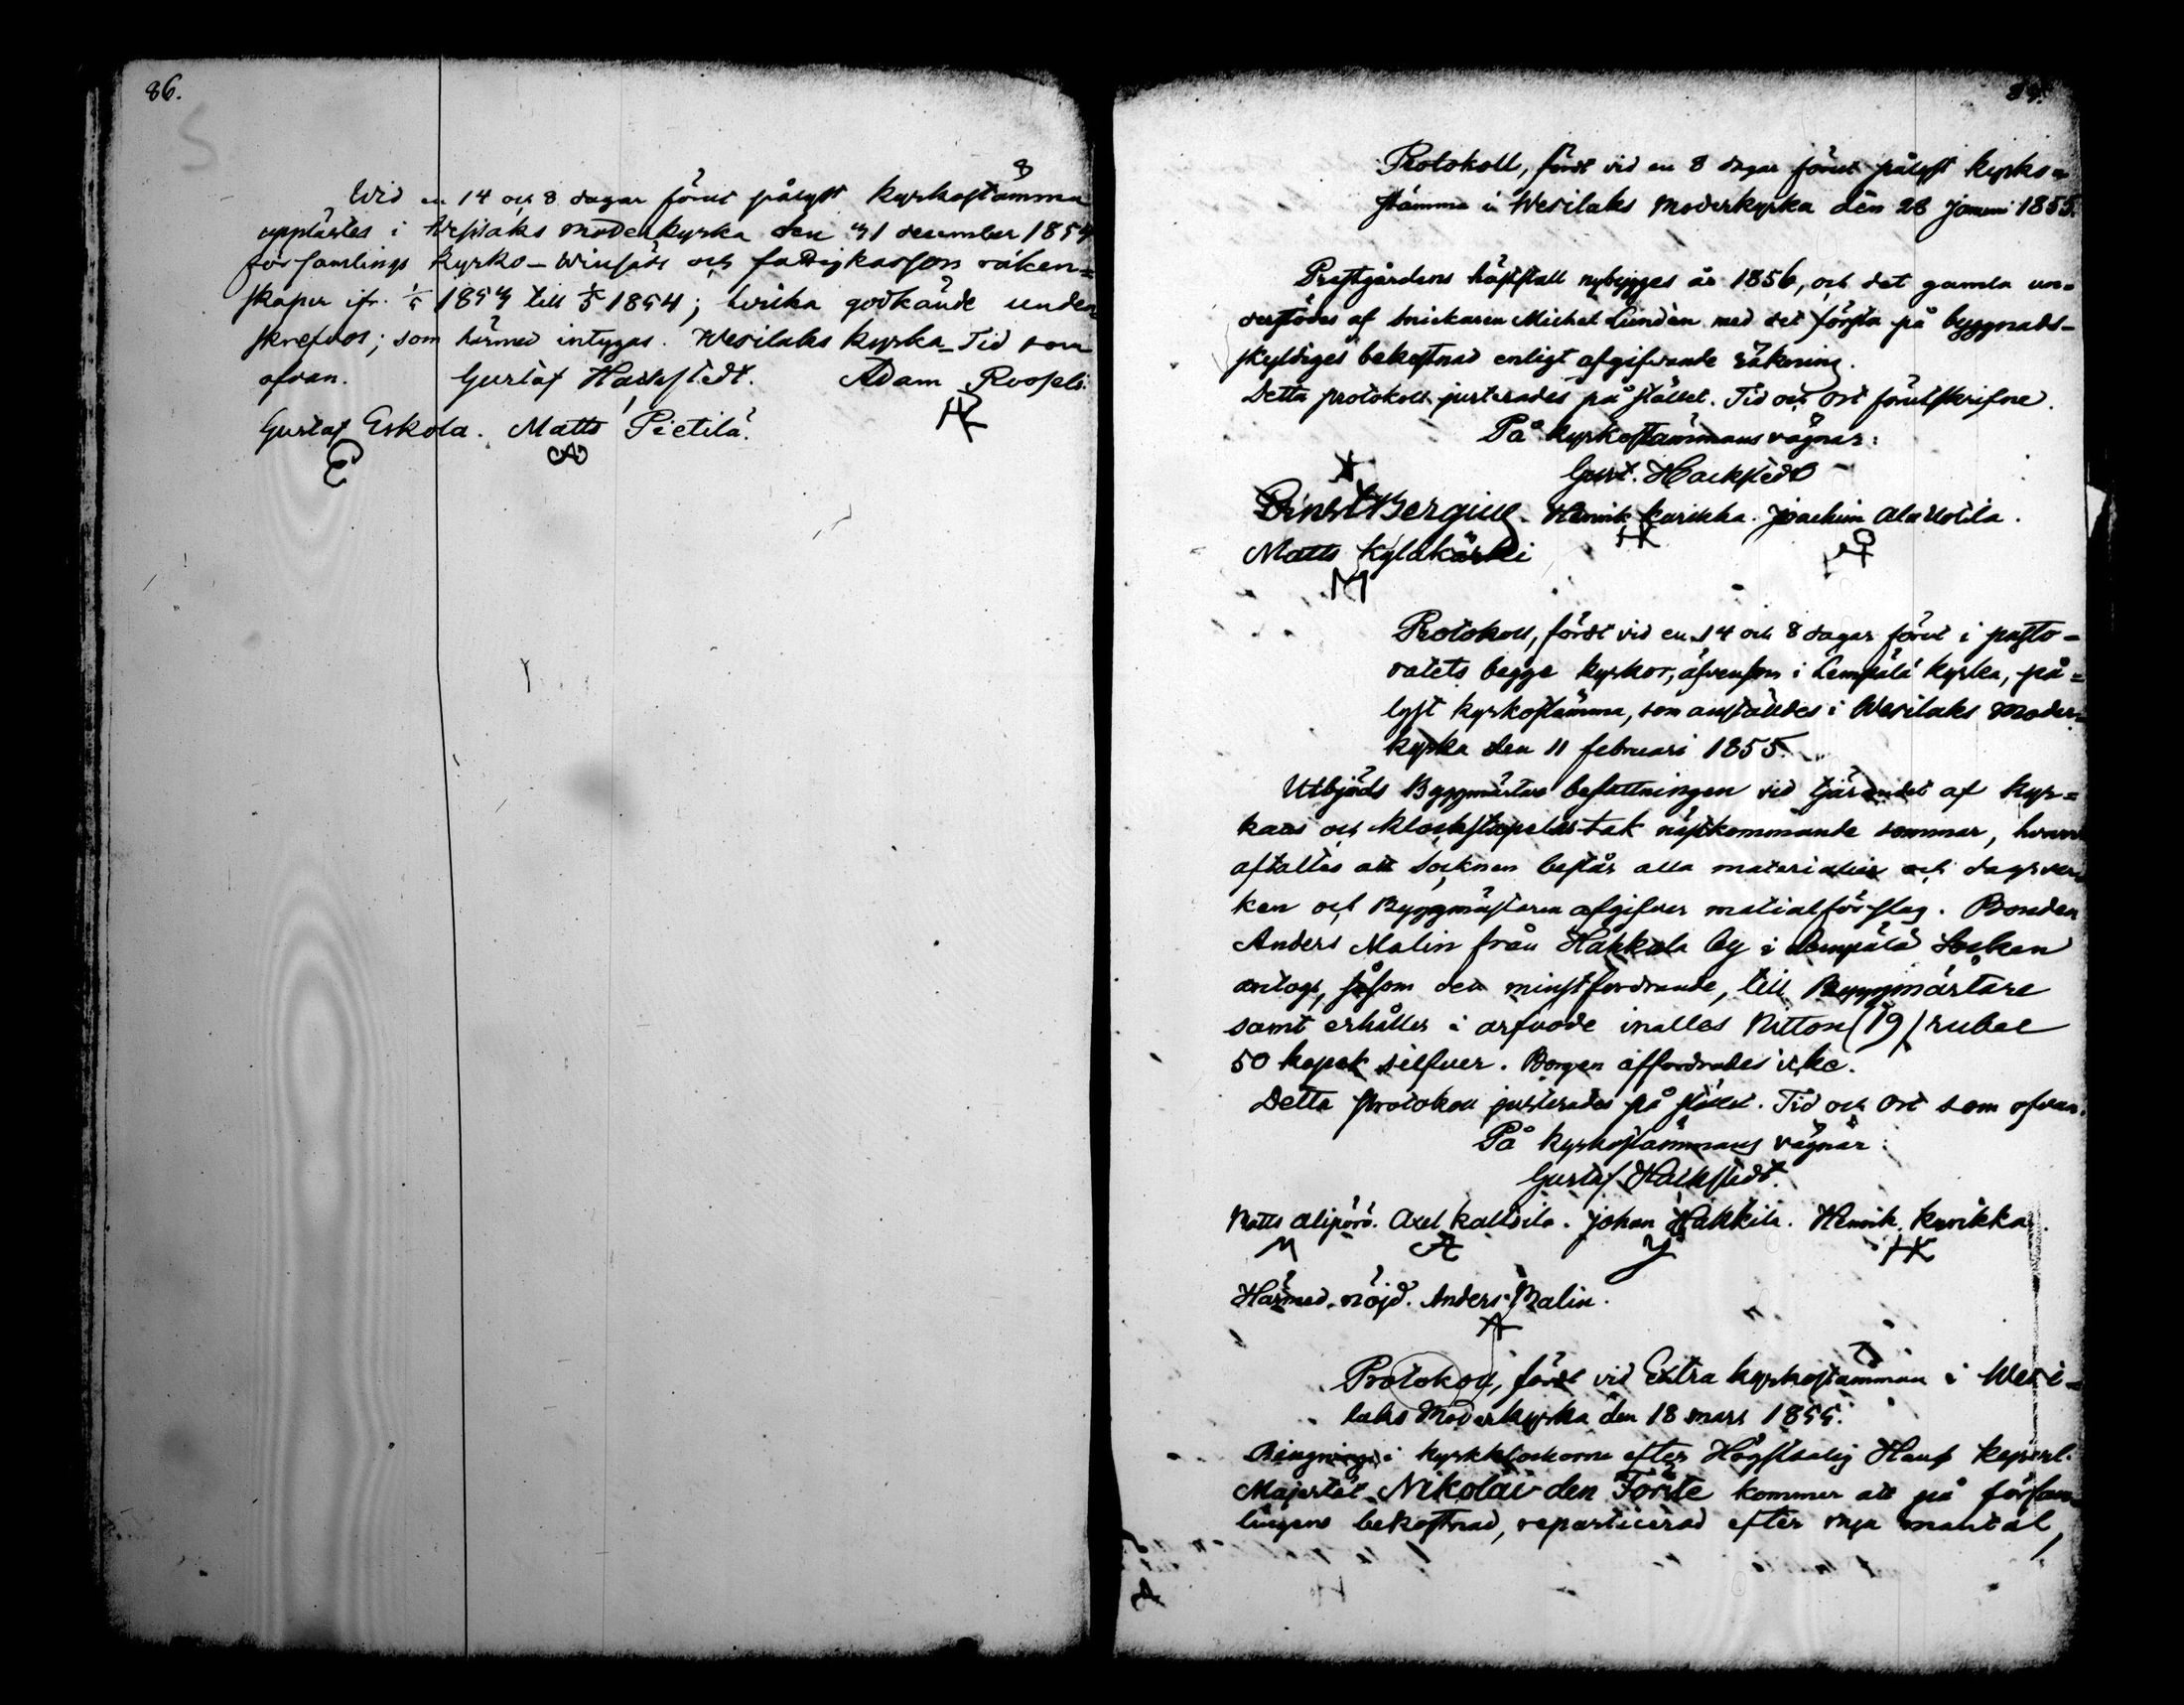 86.
Wid en 14 och 8 dagar förut pålyst kyrkostämma
upplästes i Wesilaks moderkyrka den 31 december 1854
församlings Kyrko- Winsäds och fattigkassors räken=
skaper ifr. 1/5 1853 till 1/5 1854; hvilka godkände under
skrefvos; som härmed intygas. Wesilaks kyrka Tid som
ofvan. Gustaf Hackstedt. Adam Roopeli.
HK
Gustaf Eskola. Matts Pietilä.
E
87.
Protokoll, fördt vid en 8 dagar förut pålyst kyrko=
stämma i Wesilaks Moderkyrka den 28 januari 1855.
Prestgårdens häststall nybygges år 1856, och det gamla un=
derstödes af Snickaren Michel Lundén med det första på byggnads-
skyldiges bekostnad enligt afgifvande räkning.
Detta protokoll justerades på stället. Tid och Ort förutskrifne.
På kyrkostämmans vägnar:
Gust. Hackstedt
Ernst Bergius. Henrik Kurikka. Joachim Ala Uotila.
HK
Matts Kyläkärki
M
Protokoll, fördt vid en 14 och 8 dagar förut i pasto=
ratets begge kyrkor, äfvensom i Lempälä kyrka, på=
lyst kyrkostämma, som anställdes i Wesilaks Moder=
kyrka den 11 februari 1855.
Utbjöds Byggmästare befattningen vid tjärandet af kyr=
kans och klockstapelns tak nästkommande sommar, hvarvid
aftaltes att Socknen består alla materialier och dagsver=
ken och Byggmästaren afgifver matialförslag. Bonden
Anders Malin från Hakkola by i Lempälä Socken
antogs, såsom den minstfordrande, till Byggmästare
samt erhåller i arfvode inalles Nitton (19) rubel
50 kopek silfver. Borgen affordrades icke.
Detta protokoll justerades på stället. Tid och Ort som ofvan.
På kyrkostämmans vägnar:
Gustaf Hackstedt.
Matts Alipörö. Axel Kaltsila. Johan Hakkila. Henrik Kurikka.
M A J HK
Härmed nöjd. Anders Malin.
A
Protokoll, fördt vid Extra kyrkostämman i Wesi=
laks Moderkyrka den 18 mars 1855.
Ringning i kyrkklockorne efter Högstsalig Hans Kejserl.
Majestät Nikolai den Förste kommer att på försam=
lingens bekostnad, reparticerad efter rinja mantal,